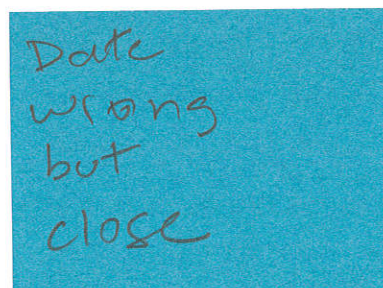 Date
wrong
but
close